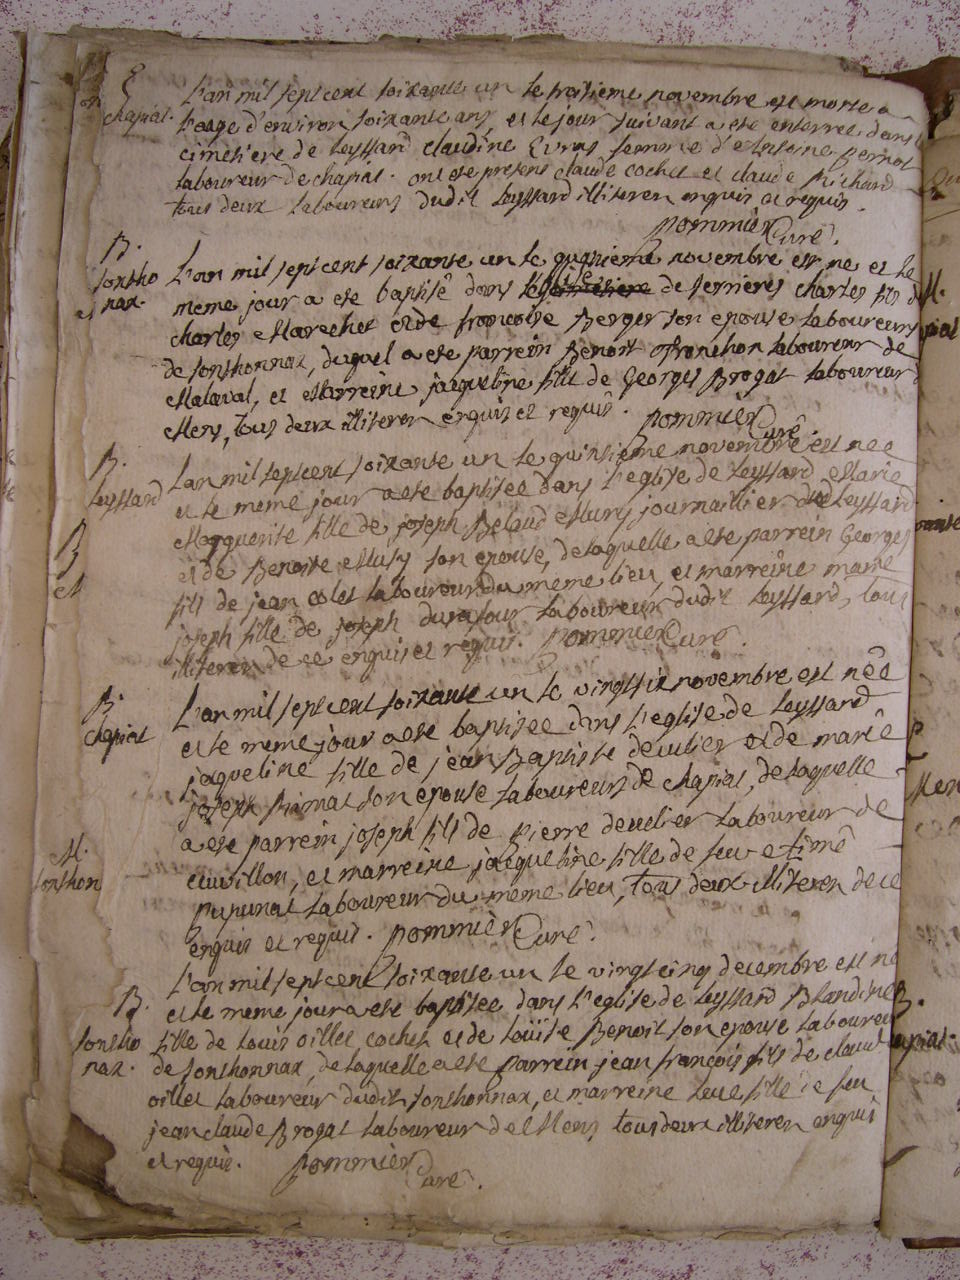 E
chapiat.
L'an mil sept cent soixante un le troisieme novembre est morte a
l'aage d'environ soixante ans, et le jour suivant a ete enterrée dans l
cimetiere de Leyssard claudine Evras femme d'Antoine Pernot
laboureur de chapiat. ont ete presens claude cochet et claude Richard
tous deux laboureurs dudit Leyssard illiteren enquis et requis.
pommier Curé.
B.
sontho
nax.
L'an mil sept cent soixante un le quinsieme novembre est né et le
meme jour a ete baptisé dans l'eglise de serrieres charles fils d
charles Marechet et de françoise Berger son epouse laboureurs
de sonthonnax, duquel a ete parrein Benoit franchon laboureur de
Malaval, et Marreine jacqueline fille de Georges Brogat laboureur d
Mens, tous deux illiteren enquis et requis. pommier
Curé.
B.
Leyssard
L'an mil sept cent soixante un le quinsieme novembre est née
et le meme jour a ete baptisée dans l'eglise de Leyssard Marie
Marguerite fille de joseph Belaud Mury journaillier de Leyssard
et de Benoite Musy son epouse, de laquelle a ete parrein Georges
fils de jean colet laboureur du meme lieu, et marreine marie
joseph fille de joseph durafour laboureur dudit Leyssard, tous
illiteren de ce enquis et requis. pommier Curé.
B.
chapiat
L'an mil sept cent soixante un le vingt six novembre est née
et le meme jour a ete baptisée dans l'eglise de Leyssard
jaqueline fille de jean Baptiste deculier et de marie
joseph Pimat son epouse laboureurs de chapiat, de laquelle
a ete parrein joseph fils de pierre deculier laboureur de
Cuvillon, et marreine jacqueline fille de feu etiene
pupunat laboureur du meme lieu, tous deux illiteren de ce
enquis et requis. pommier Curé.
M.
sonthon
B.
sontho
nax.
L'an mil sept cent soixante un le vingt cinq decembre est né
et le meme jour a ete baptisée dans l'eglise de Leyssard Blandine
fille de Louis oillet cochet et de Louise Benoit son epouse laboureu
de sonthonnax, de laquelle a ete parrein jean françois fils de claud
oillet laboureur dudit sonthonnax, et marreine fille de feu
jean claude Brogat laboureur de Mens tous deux illiteren enquis
et requis. pommier
Curé.